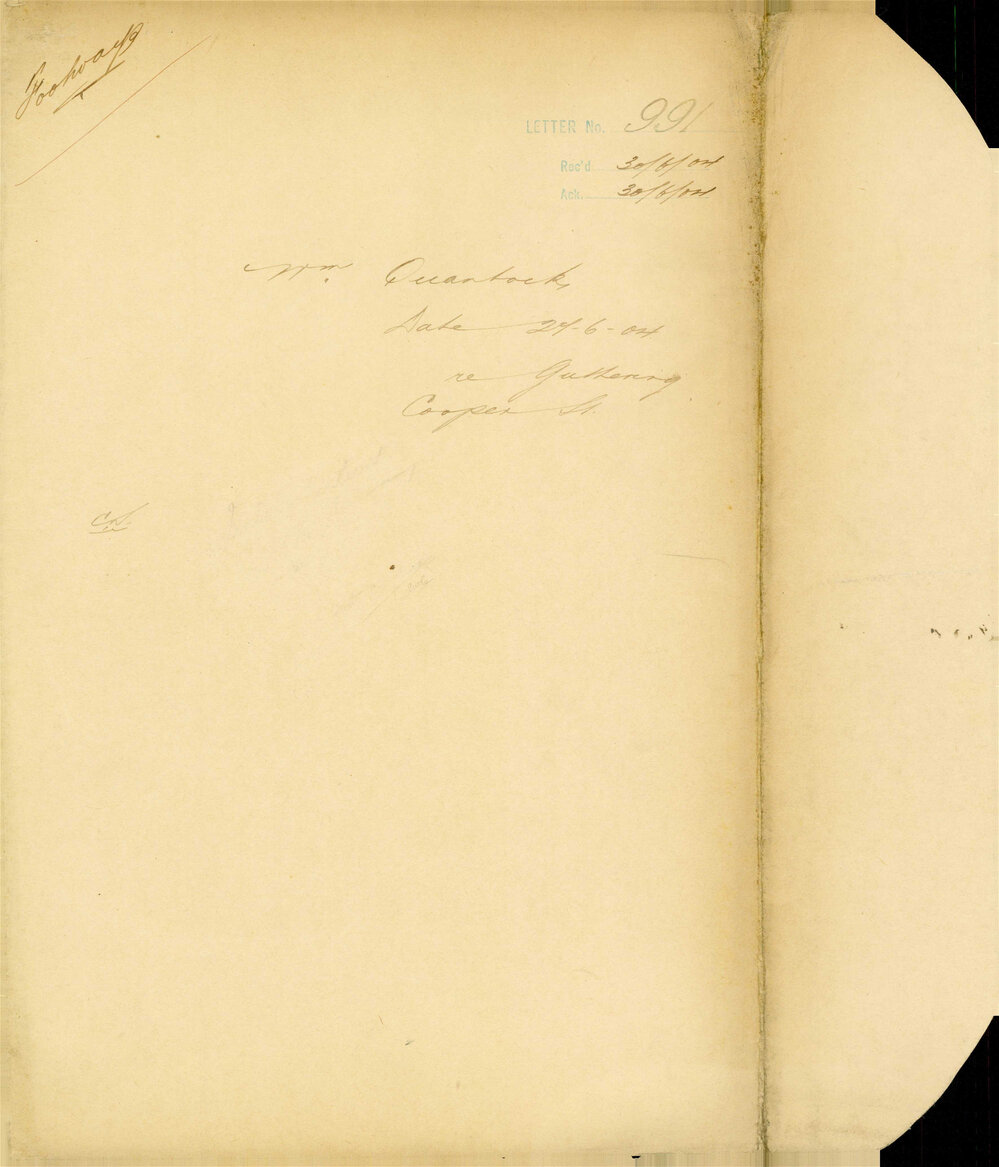 Footways
LETTER No. 991
Rec'd. 30/6/04
Ack. 30/6/04
Wm. Quantock,
Date 27-6-04
re Guttering
Cooper St.